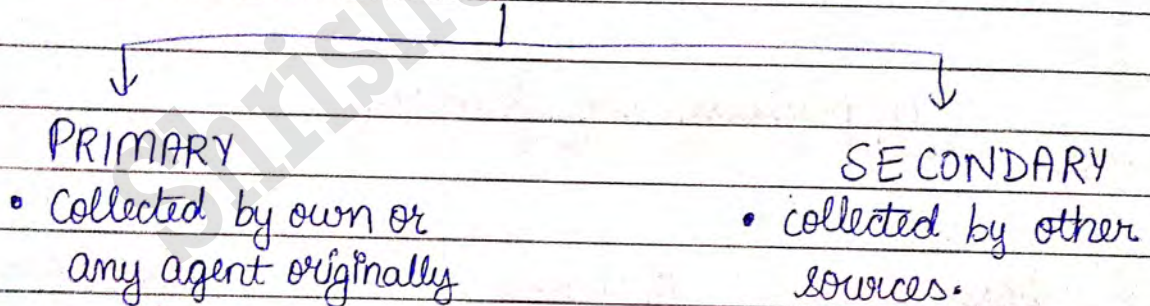 PRIMARY
• Collected by own or
any agent originally
SECONDARY
• collected by other
sources.